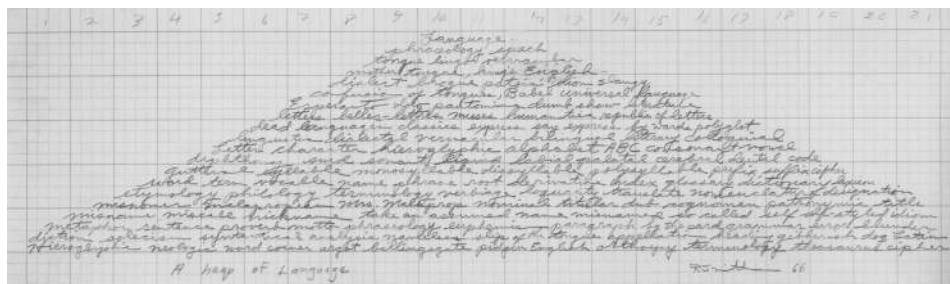 1 2 3 4 5 6 7 8 9 10 11 12 13 14 15 16 17 18 19 20 21
Language
phraseology speech
tongue lingo vernacular
mother tongue, king's English
dialect brogue patois idiom slang
confusion of tongues, Babel universal language
Esperanto Ido pantomime dumb show literature
letters belles-lettres muses humanities republic of letters
dead languages classics express say express by words polyglot
linguistic dialectal vernacular bilingual literary colloquial
letter character hieroglyphic alphabet ABC consonant vowel
diphthong surd sonant liquid labial palatal cerebral digital code
guttural syllable monosyllable dissyllable polysyllable prefix suffix cipher
word term vocable name phrase root derivative index glossary dictionary lexicon
etymology philology terminology verbiage nomenclature designation
misnomer malapropism Mrs. Malaprop nominate titular dub cognomen patronymic title
misname miscall nickname take an assumed name misnamed so called self styled idiom
metaphor sentence proverb motto phraseology euphemism paragraph
syntax analysis dog Latin
Hieroglyphic neologic word coiner argot billingsgate pidgin English terminology thesaurus cipher
A heap of Language
R. Smithson 66